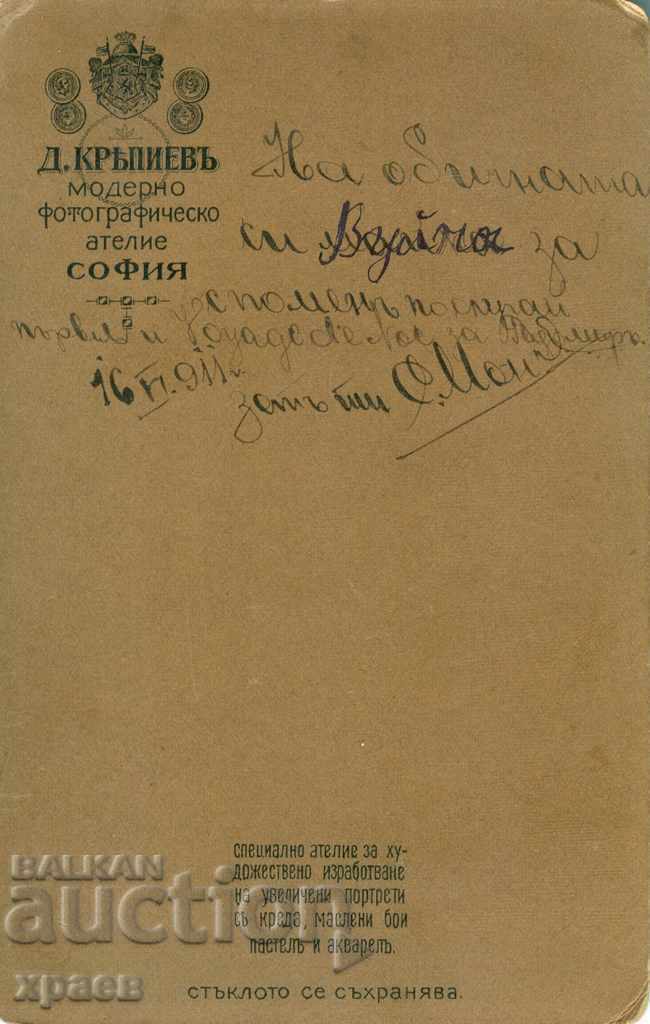 Д. КРѢПИЕВЪ
МОДЕРНО
ФОТОГРАФИЧЕСКО
АТЕЛИЕ
СОФИЯ
На обичната
си за
споменъ
първа и
16 VI. 911 г.
С. Мон
СПЕЦИАЛНО АТЕЛИЕ ЗА ХУ-
ДОЖЕСТВЕНО ИЗРАБОТВАНЕ
НА УВЕЛИЧЕНИ ПОРТРЕТИ
СЪ КРЕДА, МАСЛЕНИ БОИ
ПАСТЕЛЪ И АКВАРЕЛЪ.
СТЪКЛОТО СЕ СЪХРАНЯВА.
BALKAN
auction
храев